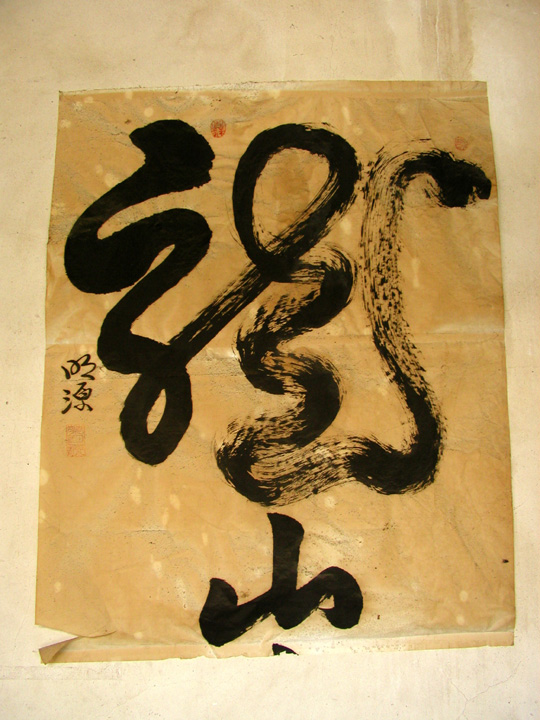 龍山
明源